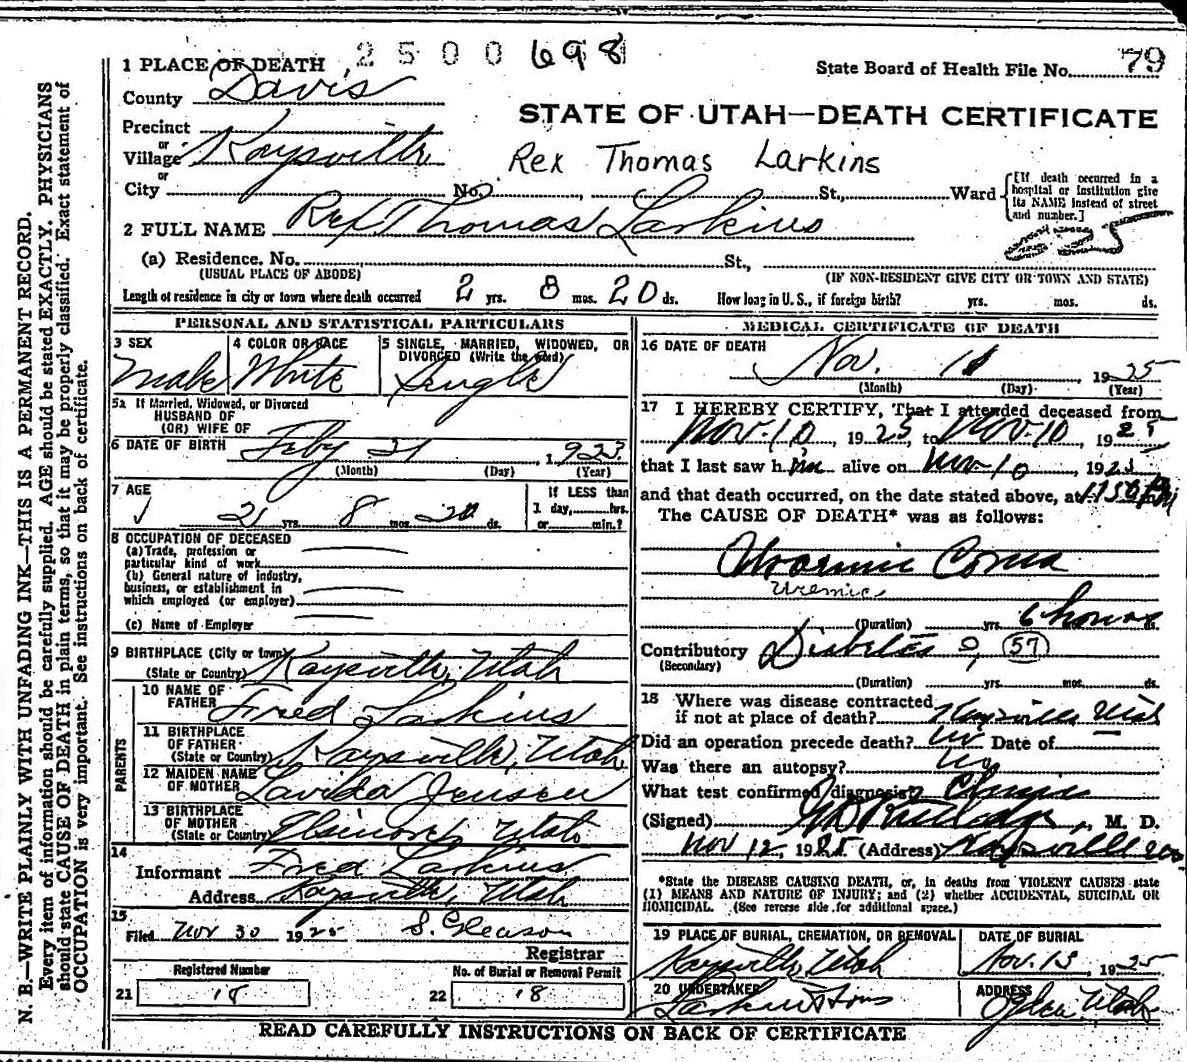 2500698
1 PLACE OF DEATH
State Board of Health File No. 79
County Davis
STATE OF UTAH—DEATH CERTIFICATE
Precinct
or
Village Kaysville
Rex Thomas Larkins
or
City No. St., Ward
[If death occurred in a hospital or institution give its NAME instead of street and number.]
2 FULL NAME Rex Thomas Larkins
(a) Residence. No. St.,
(USUAL PLACE OF ABODE) (IF NON-RESIDENT GIVE CITY OR TOWN AND STATE)
Length of residence in city or town where death occurred 2 yrs. 8 mos. 20 ds. How long in U.S., if foreign birth? yrs. mos. ds.
PERSONAL AND STATISTICAL PARTICULARS
3 SEX 4 COLOR OR RACE 5 SINGLE, MARRIED, WIDOWED, OR DIVORCED (Write the word)
Male White Single
5a If Married, Widowed, or Divorced
HUSBAND OF
(OR) WIFE OF
6 DATE OF BIRTH Feby 21 1923
(Month) (Day) (Year)
7 AGE If LESS than
2 yrs. 8 mos. 20 ds. 1 day, hrs. or min.?
8 OCCUPATION OF DECEASED
(a) Trade, profession or
particular kind of work
(b) General nature of industry,
business, or establishment in
which employed (or employer)
(c) Name of Employer
9 BIRTHPLACE (City or town)
(State or Country) Kaysville, Utah
PARENTS
10 NAME OF
FATHER Fred Larkins
11 BIRTHPLACE
OF FATHER
(State or Country) Kaysville, Utah
12 MAIDEN NAME
OF MOTHER Jensen
13 BIRTHPLACE
OF MOTHER
(State or Country) Elsinore, Utah
14
Informant Fred Larkins
Address Kaysville, Utah
15
Filed Nov 30 1925 S. Gleason
Registrar
Registered Number No. of Burial or Removal Permit
21 18 22 18
MEDICAL CERTIFICATE OF DEATH
16 DATE OF DEATH
Nov. 1925
(Month) (Day) (Year)
17 I HEREBY CERTIFY, That I attended deceased from
Nov-10, 1925 to Nov-10, 1925
that I last saw him alive on Nov-10, 1925
and that death occurred, on the date stated above, at
The CAUSE OF DEATH* was as follows:
Coma
Uremic
6 hours
(Duration) yrs. ds.
Contributory Diabetes 57
(Secondary)
(Duration) yrs. mos. ds.
18 Where was disease contracted
if not at place of death? Kaysville Utah
Did an operation precede death? no Date of
Was there an autopsy? no
What test confirmed diagnosis?
(Signed) M. D.
Nov 12, 1925 (Address) Kaysville
*State the DISEASE CAUSING DEATH, or, in deaths from VIOLENT CAUSES state
(1) MEANS AND NATURE OF INJURY; and (2) whether ACCIDENTAL, SUICIDAL OR
HOMICIDAL. (See reverse side for additional space.)
19 PLACE OF BURIAL, CREMATION, OR REMOVAL DATE OF BURIAL
Kaysville, Utah Nov. 13 1925
20 UNDERTAKER ADDRESS
Larkin & Sons Ogden, Utah
READ CAREFULLY INSTRUCTIONS ON BACK OF CERTIFICATE
N. B.—WRITE PLAINLY WITH UNFADING INK—THIS IS A PERMANENT RECORD.
Every item of information should be carefully supplied. AGE should be stated EXACTLY. PHYSICIANS
should state CAUSE OF DEATH in plain terms, so that it may be properly classified. Exact statement of
OCCUPATION is very important. See instructions on back of certificate.